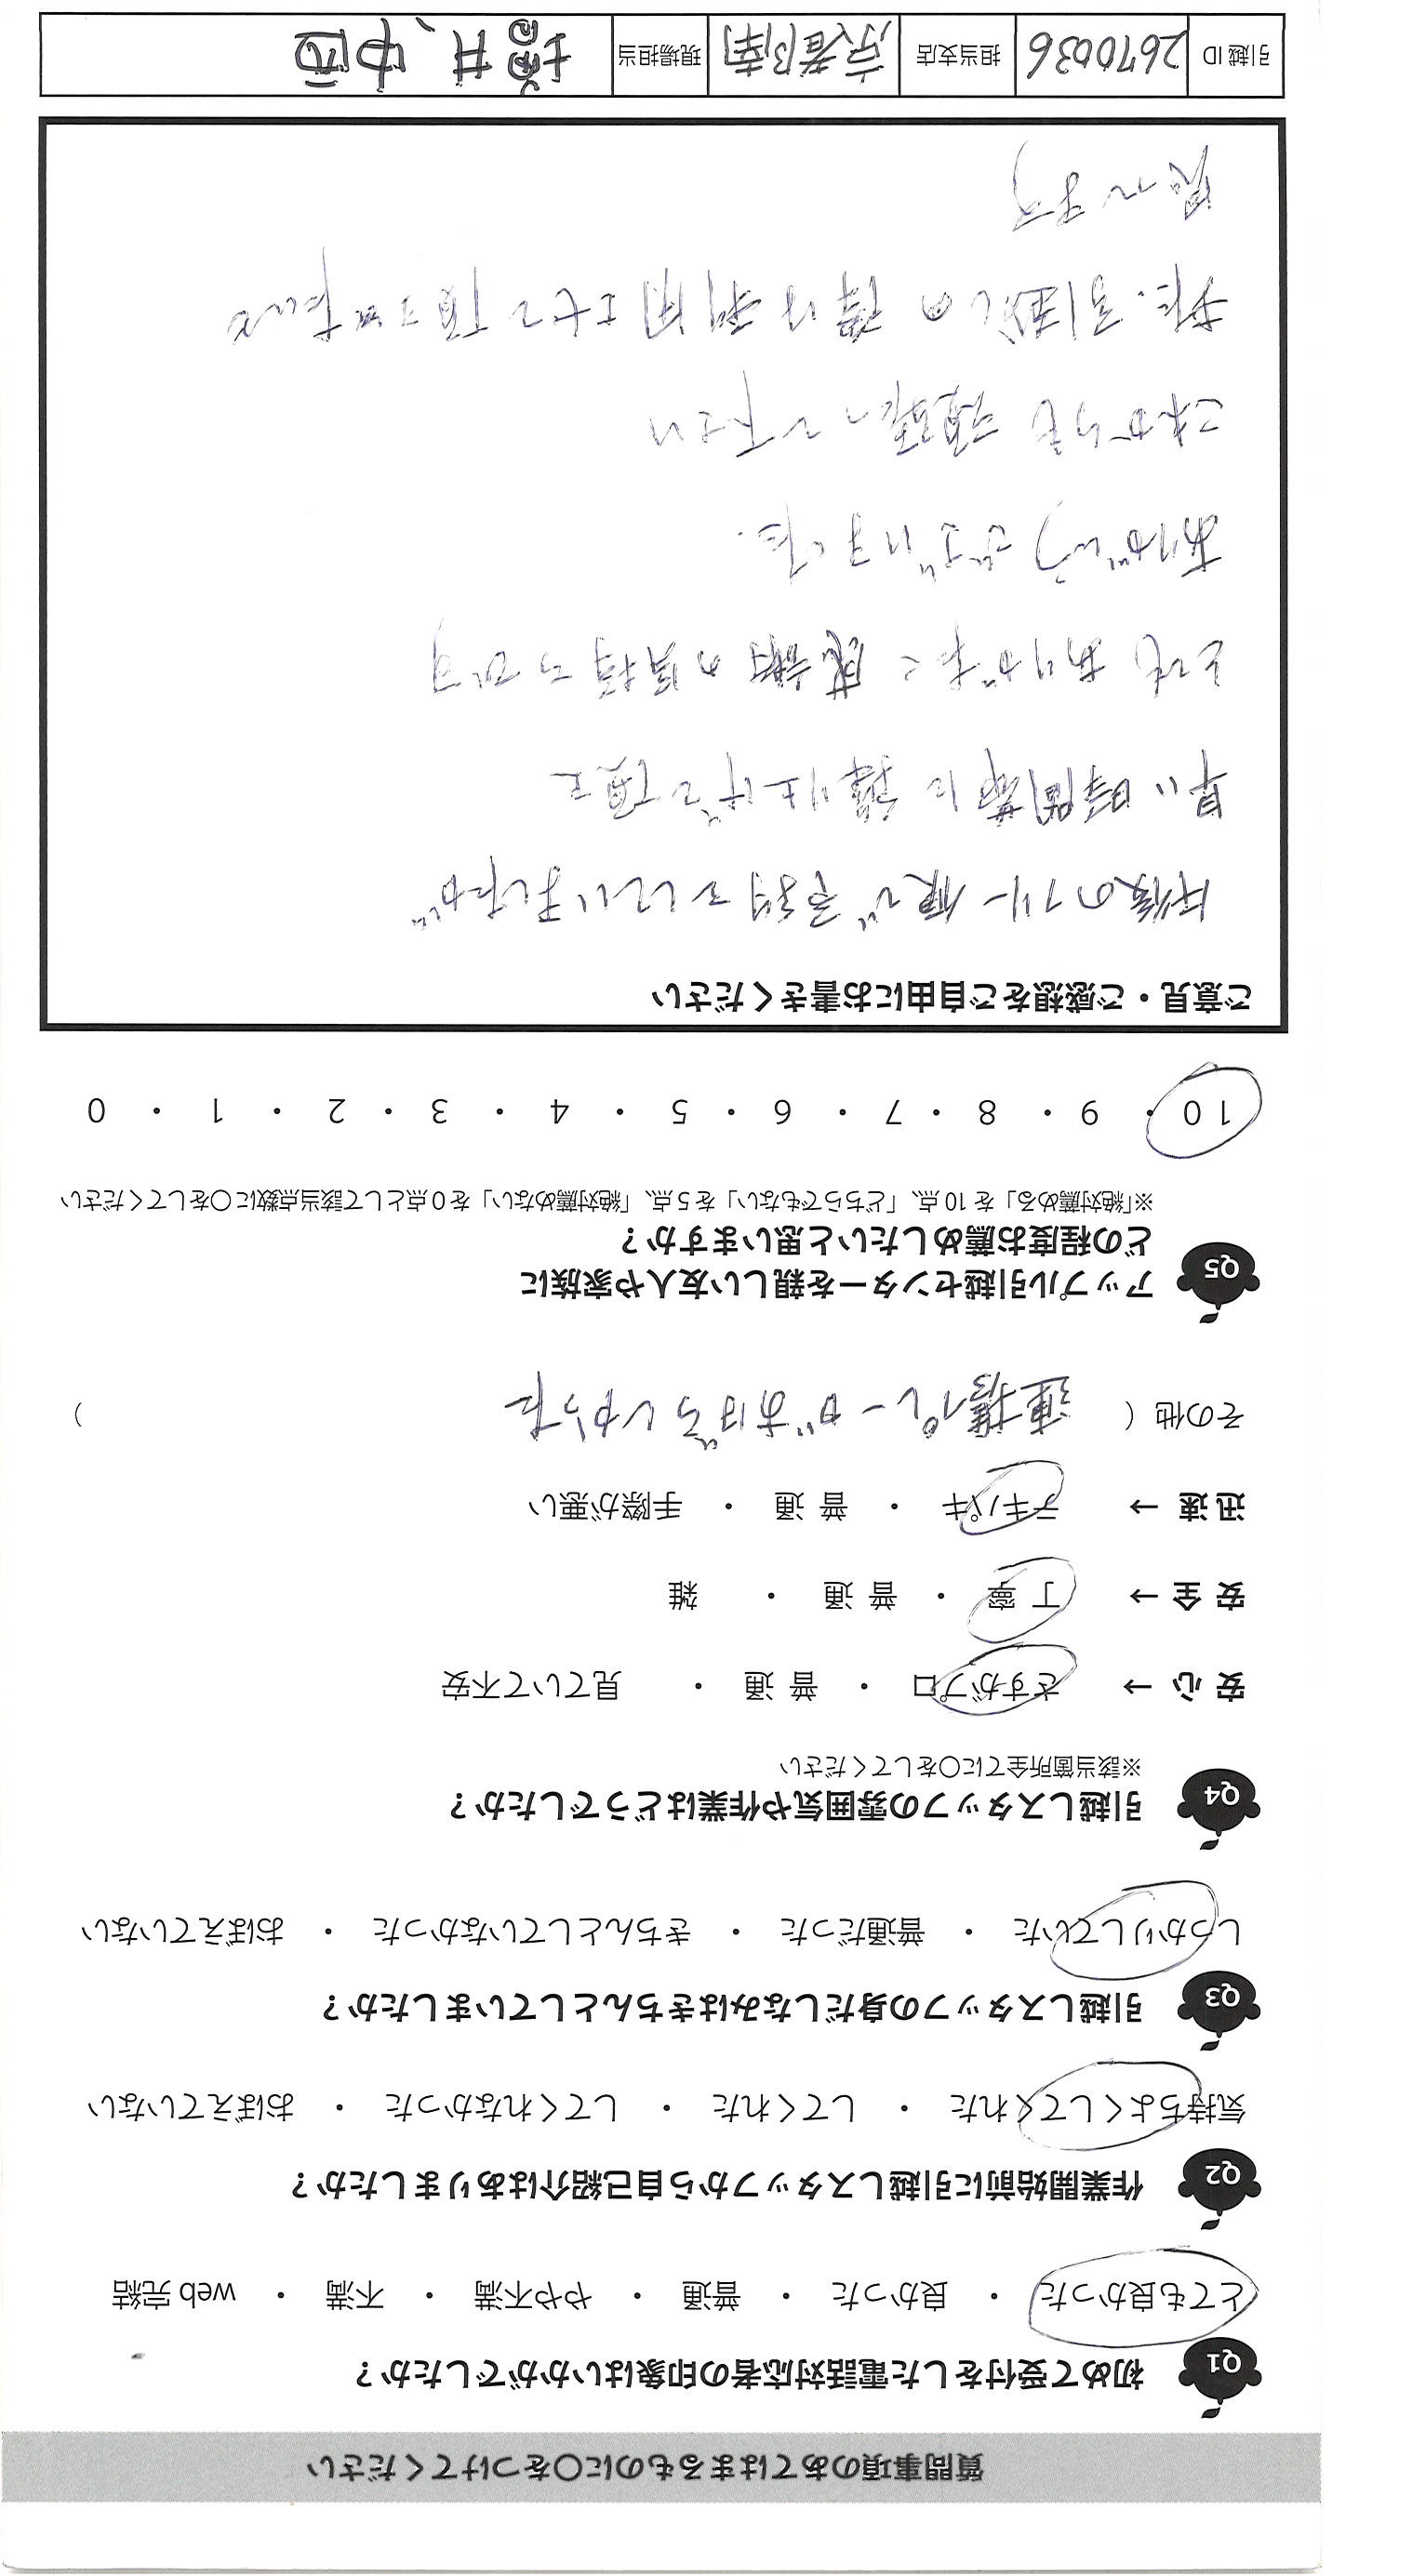 質問事項のあてはまるものに○をつけてください
Q1 初めて受付をした電話対応者の印象はいかがでしたか？
とても良かった ・ 良かった ・ 普通 ・ やや不満 ・ 不満 ・ web 完結
Q2 作業開始前に引越しスタッフから自己紹介はありましたか？
気持ちよくしてくれた ・ してくれた ・ してくれなかった ・ おぼえていない
Q3 引越しスタッフの身だしなみはきちんとしていましたか？
しっかりしていた ・ 普通だった ・ きちんとしていなかった ・ おぼえていない
Q4 引越しスタッフの雰囲気や作業はどうでしたか？
※該当箇所全てに○をしてください
安 心 → さすがプロ ・ 普 通 ・ 見ていて不安
安 全 → 丁 寧 ・ 普 通 ・ 雑
迅 速 → テキパキ ・ 普 通 ・ 手際が悪い
その他（ 連携プレーがすばらしかった ）
Q5 アップル引越センターを親しい友人や家族に
どの程度お薦めしたいと思いますか？
※「絶対薦める」を 10 点、「どちらでもない」を 5 点、「絶対薦めない」を 0 点として該当点数に○をしてください
10 ・ 9 ・ 8 ・ 7 ・ 6 ・ 5 ・ 4 ・ 3 ・ 2 ・ 1 ・ 0
ご意見・ご感想をご自由にお書きください
午後のフリー便で予約していましたが
早い時間帯に繰り上げて頂き
とてもありがたく感謝の気持ちです
ありがとうございました.
これからも頑張って下さい
また、引越しの際は利用させて頂きたいと
思います
引越 ID 2670036 担当支店 京都南 現場担当 増井、中西